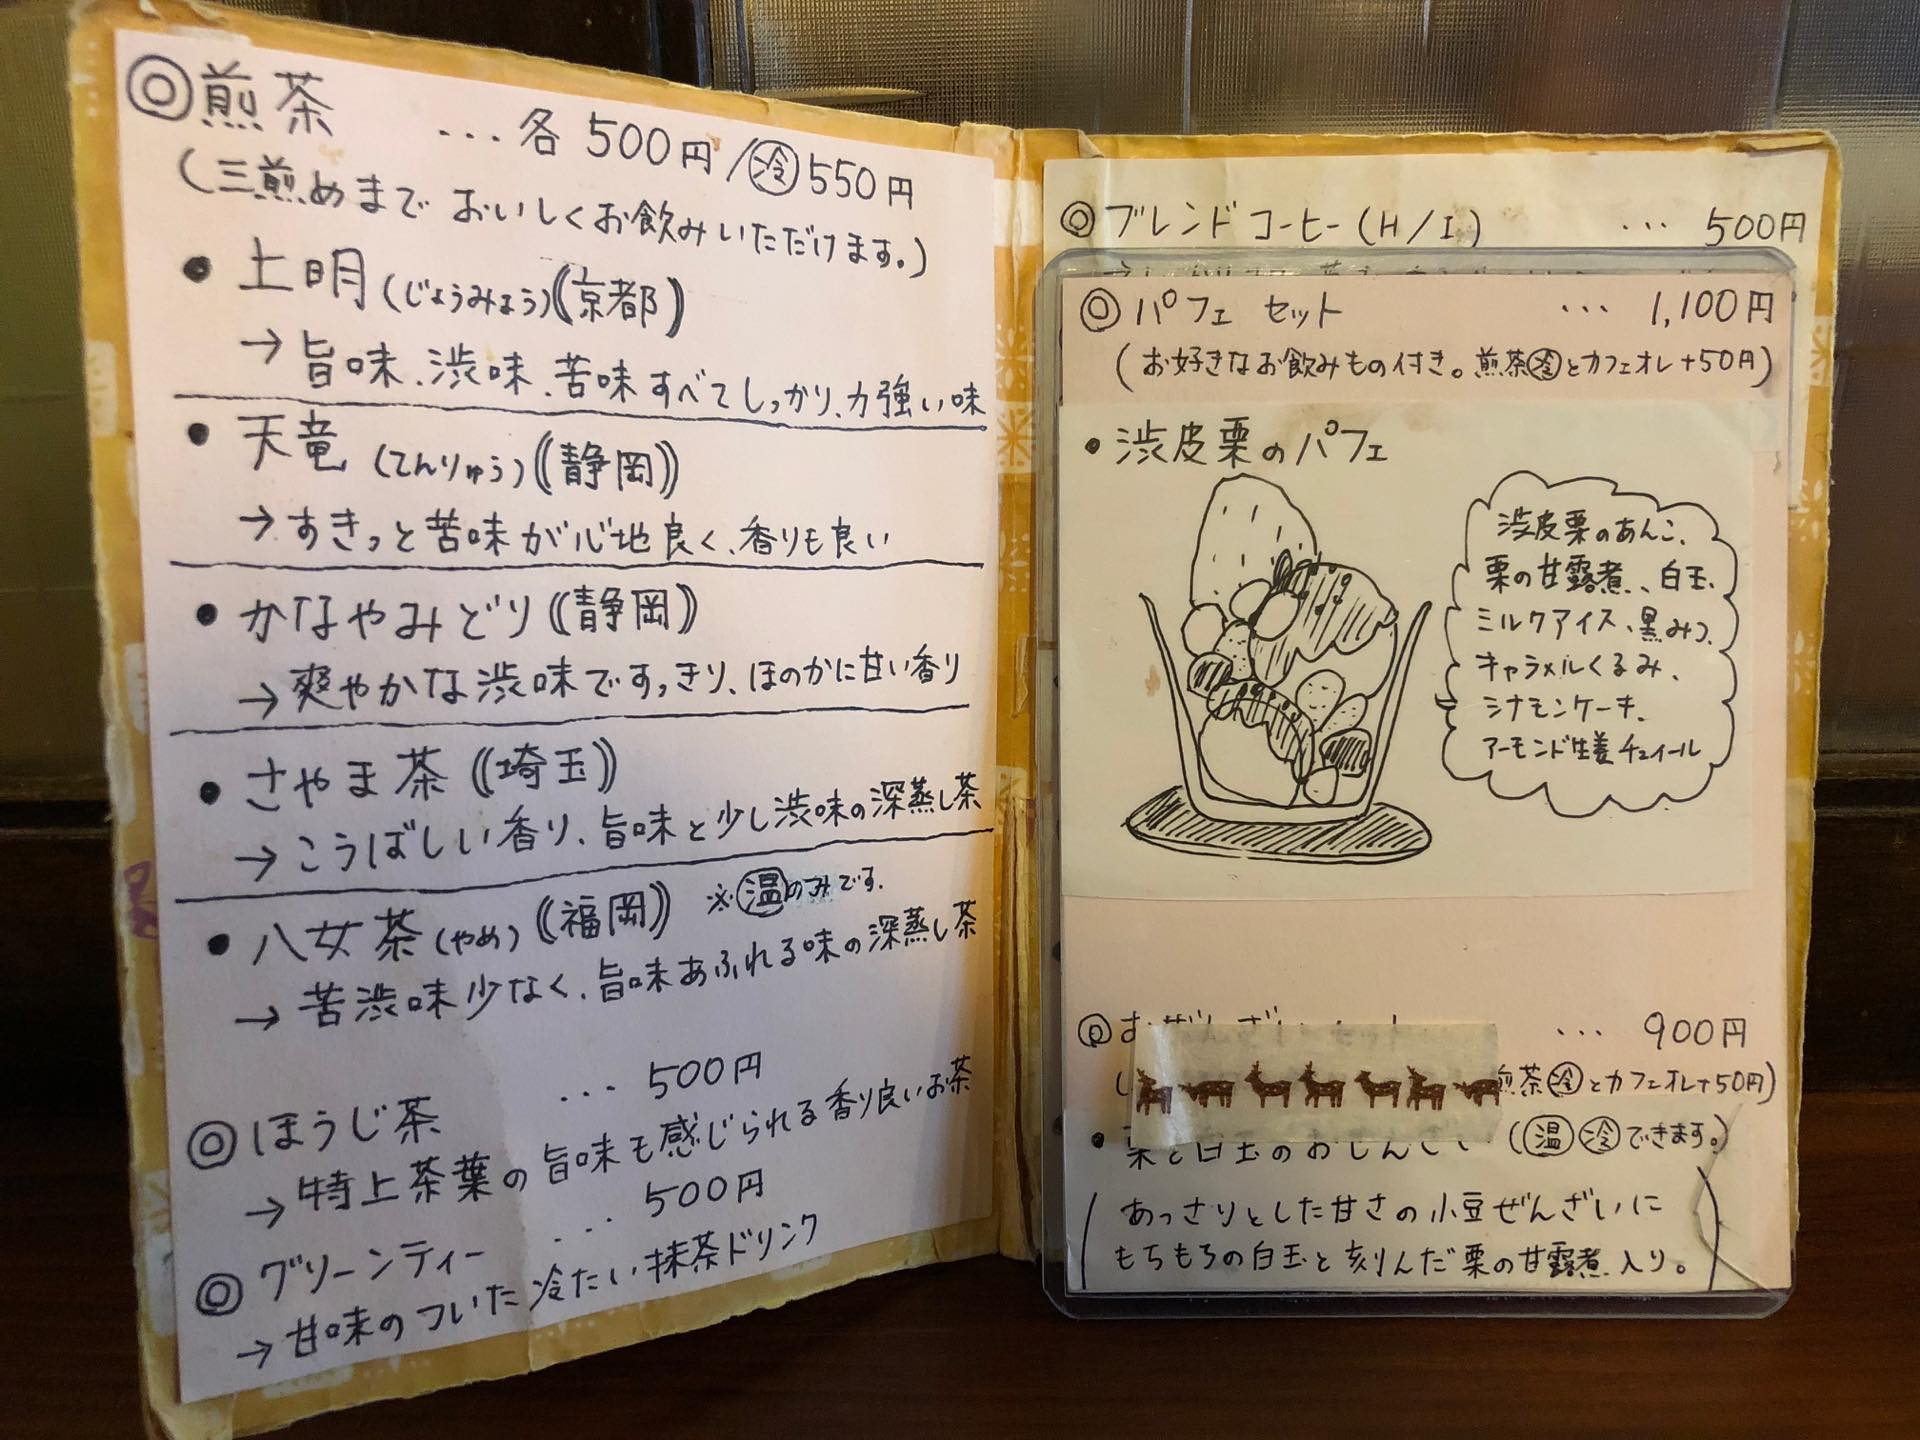 ◎煎茶 …各500円/㊥冷550円
(三煎めまでおいしくお飲みいただけます。)
• 上明(じょうみょう)((京都))
→旨味、渋味、苦味すべてしっかり、力強い味
• 天竜(てんりゅう)((静岡))
→すきっと苦味が心地良く、香りも良い
• かなやみどり((静岡))
→爽やかな渋味ですっきり、ほのかに甘い香り
• さやま茶((埼玉))
→こうばしい香り、旨味と少し渋味の深蒸し茶
• 八女茶(やめ)((福岡)) ※温のみです。
→苦渋味少なく、旨味あふれる味の深蒸し茶
◎ほうじ茶 …500円
→特上茶葉の旨味も感じられる香り良いお茶
◎グリーンティー …500円
→甘味のついた冷たい抹茶ドリンク
◎ブレンドコーヒー(H/I) …500円
◎パフェセット …1,100円
(お好きなお飲みもの付き。煎茶冷とカフェオレ+50円)
• 渋皮栗のパフェ
渋皮栗のあんこ、
栗の甘露煮、白玉、
ミルクアイス、黒みつ、
キャラメルくるみ、
シナモンケーキ、
アーモンド生姜チュイール
◎おぜんざいセット …900円
煎茶冷とカフェオレ+50円)
• 栗と白玉のおぜんざい (温冷できます。)
(あっさりとした甘さの小豆ぜんざいに
もちもちの白玉と刻んだ栗の甘露煮入り。)